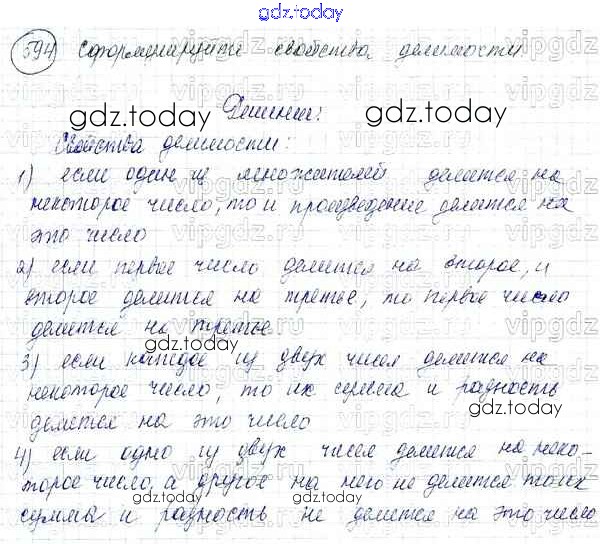 gdz.today
594 Сформулируйте свойства делимости.
Решение:
Свойства делимости:
1) если один из множителей делится на
некоторое число, то и произведение делится на
это число
2) если первое число делится на второе, и
второе делится на третье, то первое число
делится на третье.
3) если каждое из двух чисел делится на
некоторое число, то их сумма и разность
делится на это число
4) если одно из двух чисел делится на неко-
торое число, а другое на него не делится то их
сумма и разность не делится на это число
gdz.today
gdz.today
gdz.today
gdz.today
gdz.today
vipgdz.ru